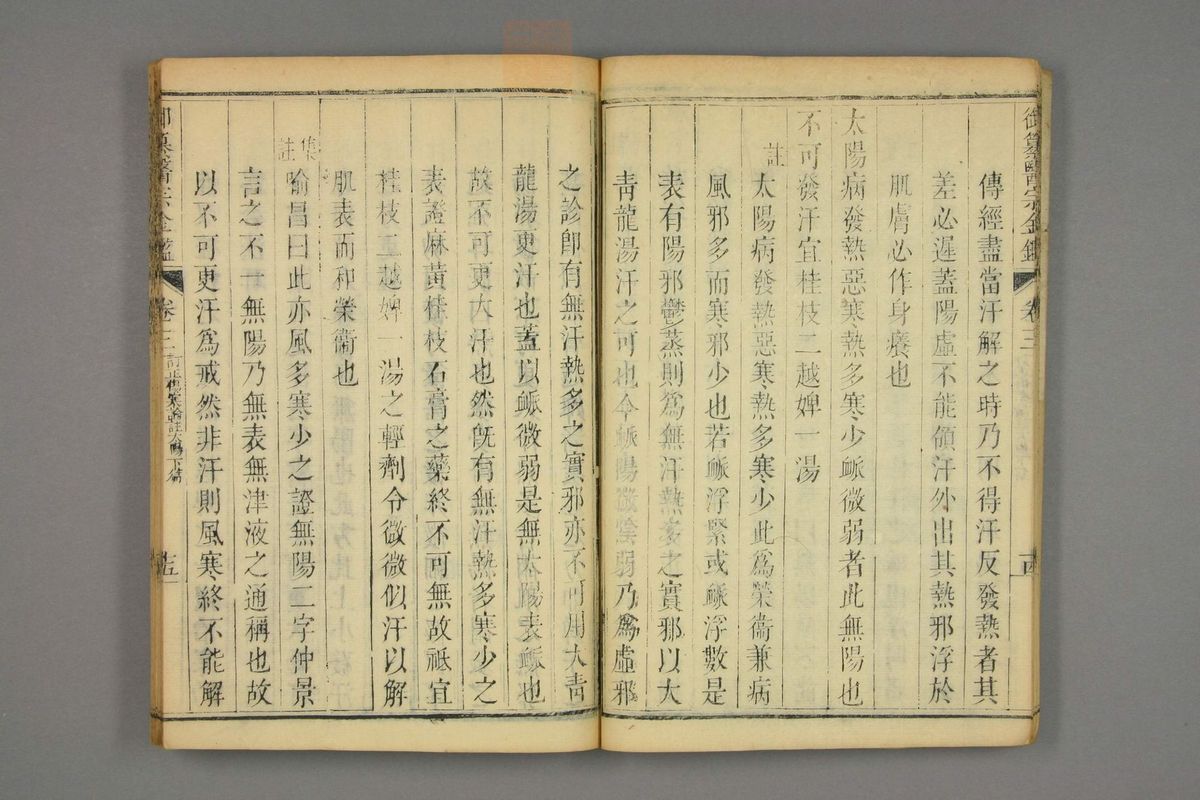 御纂醫宗金鑑 卷三 十四
傳經盡當汗解之時乃不得汗反發熱者其
差必遲蓋陽虛不能領汗外出其熱邪浮於
肌膚必作身癢也
太陽病發熱惡寒熱多寒少脈微弱者此無陽也
不可發汗宜桂枝二越婢一湯
註
太陽病發熱惡寒熱多寒少此爲榮衞兼病
風邪多而寒邪少也若脈浮緊或脈浮數是
表有陽邪鬱蒸則爲無汗熱多之實邪以大
靑龍湯汗之可也今脈陽微陰弱乃爲虛邪
之診卽有無汗熱多之實邪亦不可用大靑
龍湯更汗也蓋以脈微弱是無太陽表脈也
故不可更大汗也然旣有無汗熱多寒少之
表證麻黃桂枝石膏之藥終不可無故祗宜
桂枝二越婢一湯之輕劑令微微似汗以解
肌表而和榮衞也
集註
喻昌曰此亦風多寒少之證無陽二字仲景
言之不一無陽乃無表無津液之通稱也故
以不可更汗爲戒然非汗則風寒終不能解
御纂醫宗金鑑 卷三 訂正傷寒論註太陽下篇 十五